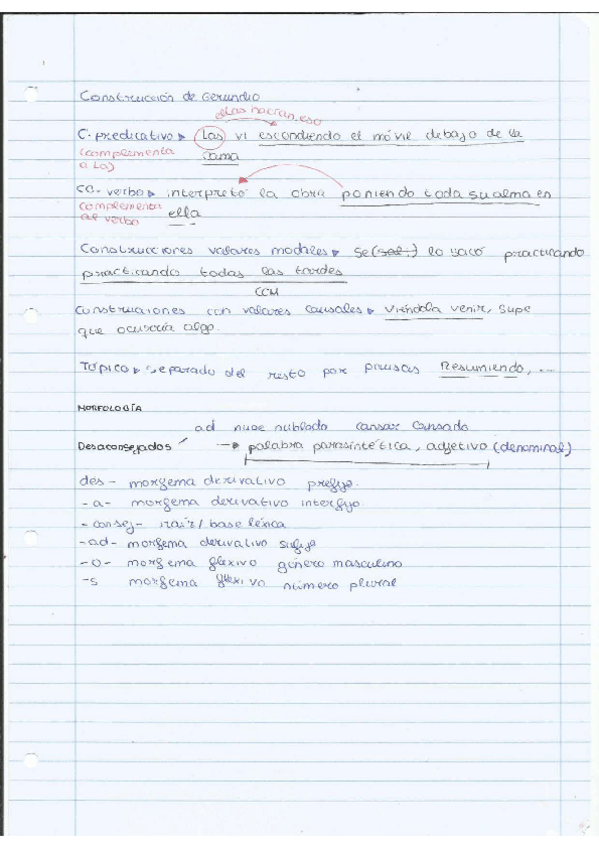 Construcción de Gerundio
ellas hacían eso
C. predicativo ▸ Las vi escondiendo el móvil debajo de la
(complementa cama
a La)
CC. verbo ▸ interpretó la obra poniendo toda su alma en
complementa ella
al verbo
Construcciones valores modales ▸ Se lo sacó practicando
practicando todas las tardes
CCM
Construciones con valores causales ▸ Viéndola venir, supe
que ocurría algo.
Tópico ▸ separado del resto por pausas Resumiendo, ...
MORFOLOGÍA
ad nube nublado cansar cansado
Desaconsejados → palabra parasintética, adjetivo (denominal)
des - morfema derivativo prefijo.
- a - morfema derivativo interfijo
- consej - raíz / base léxica
- ad - morfema derivativo sufijo
- o - morfema flexivo género masculino
- s morfema flexivo número plural